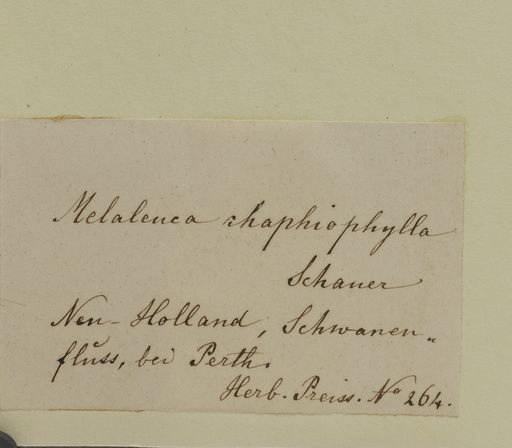 Melaleuca rhaphiophylla
Schauer
Neu-Holland, Schwanen„
fluss, bei Perth.
Herb. Preiss. No 264.